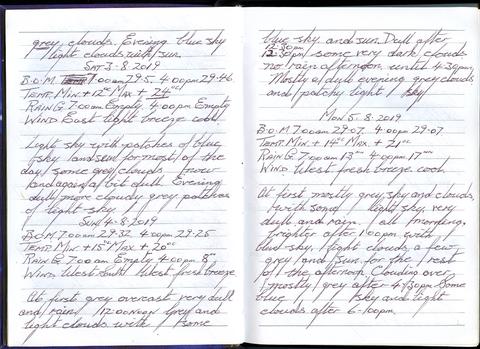 grey clouds. Evening blue sky
light clouds with sun.
SAT 3-8-2019
B.O.M 7.00am 29.5 4.00pm 29.46
TEMP. MIN + 12°C MAX + 24°C
RAIN G. 7.00am Empty. 4.00pm Empty
WIND East light breeze cool
Light sky with patches of blue
sky and sun for most of the
day some grey clouds now
and again a bit dull. Evening
dull more cloudy grey patches
of light sky
SUN 4-8-2019
B.O.M 7.00am 29.32 4.00pm 29.25
TEMP. MIN + 15°C MAX + 20°C
RAIN G. 7.00am Empty 4.00pm 8mm
WIND. West South West fresh breeze
At first grey overcast very dull
and rain 12.00 Noon grey and
light clouds with some
blue sky and sun. Dull after
12.30pm
12.30pm some very dark clouds
no rain afternoon until 4.30pm.
Mostly dull evening grey clouds
and patchy light sky
MON 5-8-2019
B.O.M 7.00am 29.07. 4.00pm 29.07
TEMP. MIN + 14°C MAX + 21°C
RAIN G. 7.00am 13mm 4.00pm 17mm
WIND. West fresh breeze cool
At first mostly grey sky and clouds,
light sky very
dull and rain all morning.
brighter after 1.00pm with
blue sky, light clouds a few
grey and sun for the rest
of the afternoon. Clouding over
mostly grey after 4.30pm Some
blue sky and light
clouds after 6-00pm.